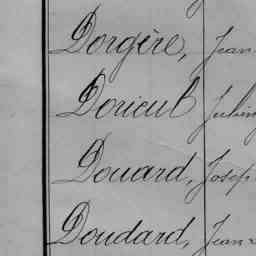 Dorgère, Jean
Dorieul Julien
Douard, Joseph
Doudard, Jean